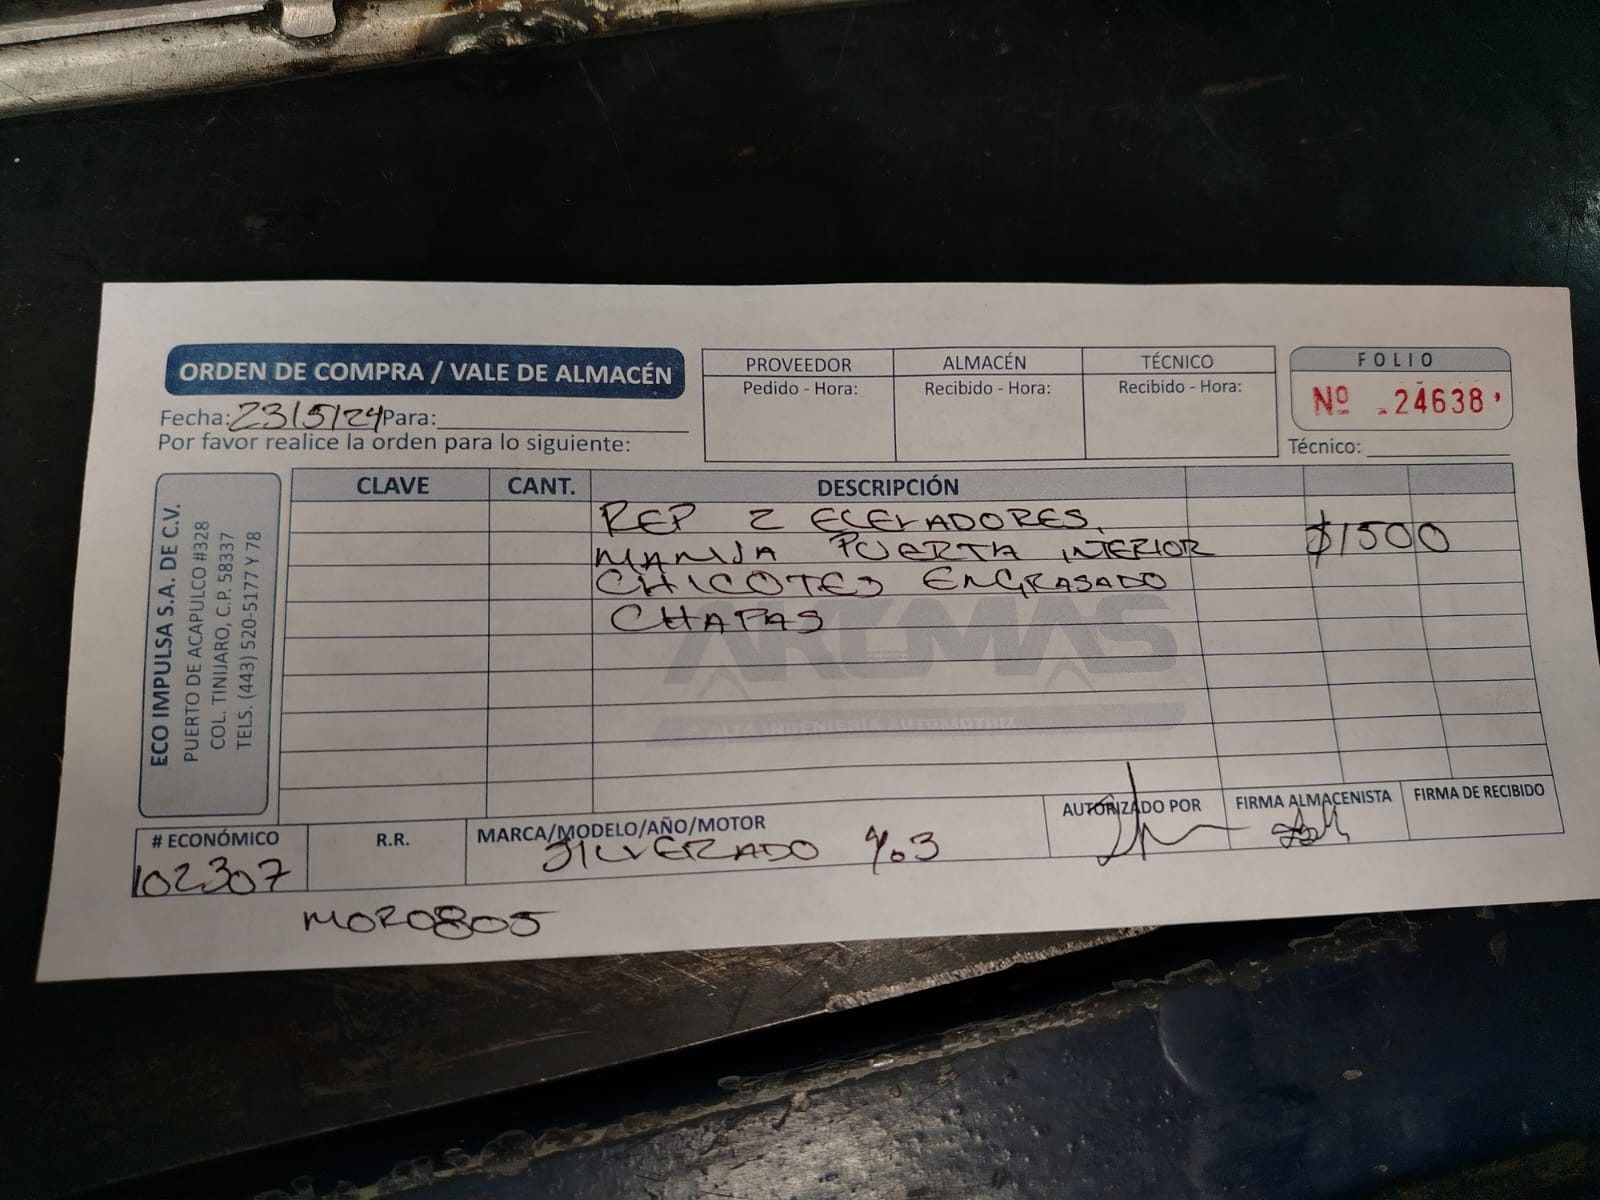 ORDEN DE COMPRA / VALE DE ALMACÉN
Fecha: 23/5/24 Para:
Por favor realice la orden para lo siguiente:
PROVEEDOR ALMACÉN TÉCNICO
Pedido - Hora: Recibido - Hora: Recibido - Hora:
FOLIO
Nº 24638
Técnico:
ECO IMPULSA S.A. DE C.V.
PUERTO DE ACAPULCO #328
COL. TINIJARO, C.P. 58337
TELS. (443) 520-5177 Y 78
CLAVE CANT. DESCRIPCIÓN
REP 2 ELEVADORES,
MANIJA PUERTA INTERIOR $1500
CHICOTES ENGRASADO
CHAPAS
AROMAS
ALTA INGENIERÍA AUTOMOTRIZ
# ECONÓMICO R.R. MARCA/MODELO/AÑO/MOTOR AUTORIZADO POR FIRMA ALMACENISTA FIRMA DE RECIBIDO
102307 SILVERADO
MOR0805